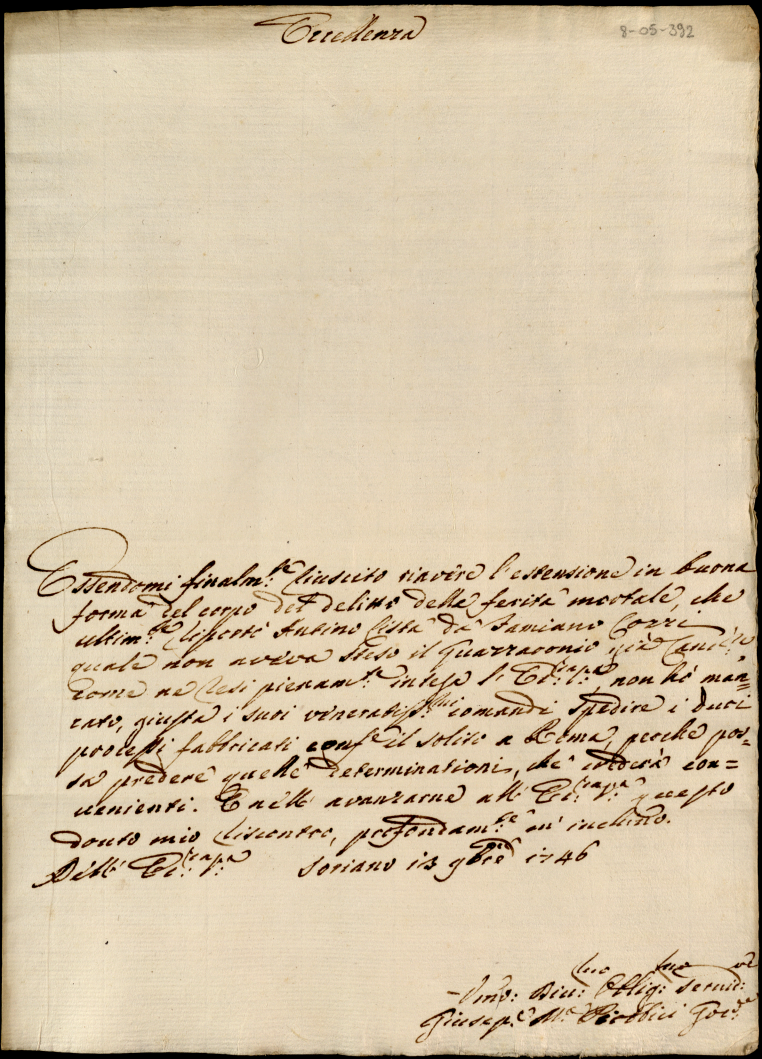 Eccellenza
8-05-392
Essendomi finalm.te riuscito riavere l'estensione in buona
forma del corpo del delitto della ferita mortale, che
ultim.te riportò Antino da Damiano
quale non aveva steso il già Canc.re
come ne resi pienam.te intesa l'Ecc.za V.ra non hò man=
cato, giusta i suoi veneratiss.mi comandi spedire i duci
processi fabbricati conf.e il solito a Roma, perche pos=
sa predere quelle determinationi, che crederà con=
venienti. E nell' avanzarne all' Ecc.za V.ra questo
douto mio riscontro, profondam.te m' inchino.
Dell' Ecc.za V.ra Soriano 13 9bre 1746
Vmo: Diu: Oblig: Seruid:
Giusep.e M.a Gov.re